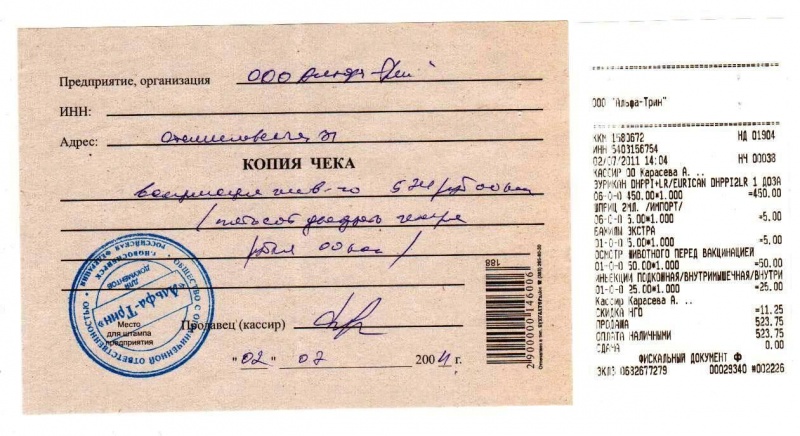 Предприятие, организация ООО Альфа-Трин
ИНН:
Адрес:
КОПИЯ ЧЕКА
вакцинация жив-го 524 руб 00 коп
/ пятьсот двадцать четыре
рубля 00 коп /
ОБЩЕСТВО С ОГРАНИЧЕННОЙ ОТВЕТСТВЕННОСТЬЮ
РОССИЙСКАЯ ФЕДЕРАЦИЯ
г. НОВОСИБИРСК
для
документов
"Альфа-Трин"
Место
для штампа
предприятия
Продавец (кассир)
"02" 07 2004 г.
188
2900000146006
ООО "Альфа-Трин"
ККМ 1580672 НД 01904
ИНН 5403156754
02/07/2011 14:04 НЧ 00038
КАССИР 00 Карасева А. ..
ЭУРИКАН DHPPI+LR/EURICAN DHPPI2LR 1 ДОЗА
06-0-0 450.00*1.000 =450.00
ШПРИЦ 2МЛ. /ИМПОРТ/
06-0-0 5.00*1.000 =5.00
БАХИЛЫ ЭКСТРА
01-0-0 5.00*1.000 =5.00
ОСМОТР ЖИВОТНОГО ПЕРЕД ВАКЦИНАЦИЕЙ
01-0-0 50.00*1.000 =50.00
ИНЪЕКЦИИ ПОДКОЖНАЯ/ВНУТРИМЫШЕЧНАЯ/ВНУТРИ
01-0-0 25.00*1.000 =25.00
Кассир Карасева А. ..
СКИДКА НГО =11.25
ПРОДАЖА 523.75
ОПЛАТА НАЛИЧНЫМИ 523.75
СДАЧА 0.00
ФИСКАЛЬНЫЙ ДОКУМЕНТ Ф
ЭКЛЗ 0632677279 00029340 #002226